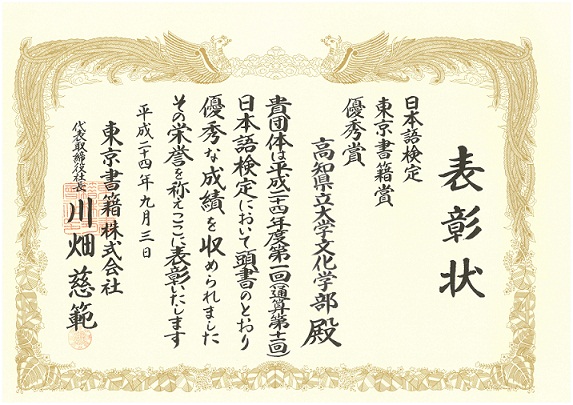 表彰状
日本語検定
東京書籍賞
優秀賞
高知県立大学文化学部 殿
貴団体は平成二十四年度第一回(通算第十一回)
日本語検定において頭書のとおり
優秀な成績を収められました
その栄誉を称えここに表彰いたします
平成二十四年九月三日
東京書籍株式会社
代表取締役社長 川畑慈範